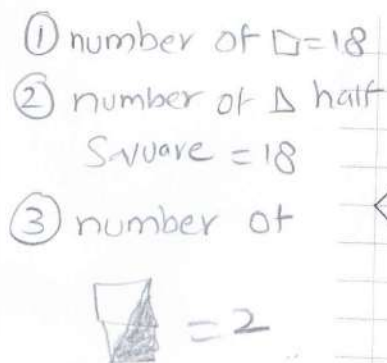 ① number of □=18
② number of △ half
Svuare =18
③ number of
=2